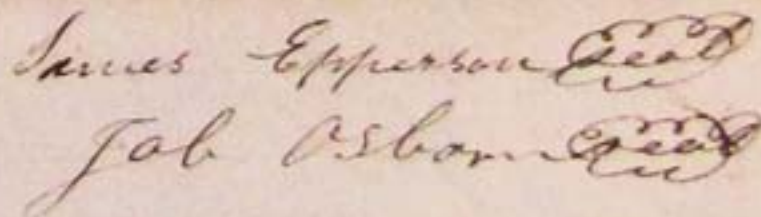 James Epperson Seal
Job Osborn Seal